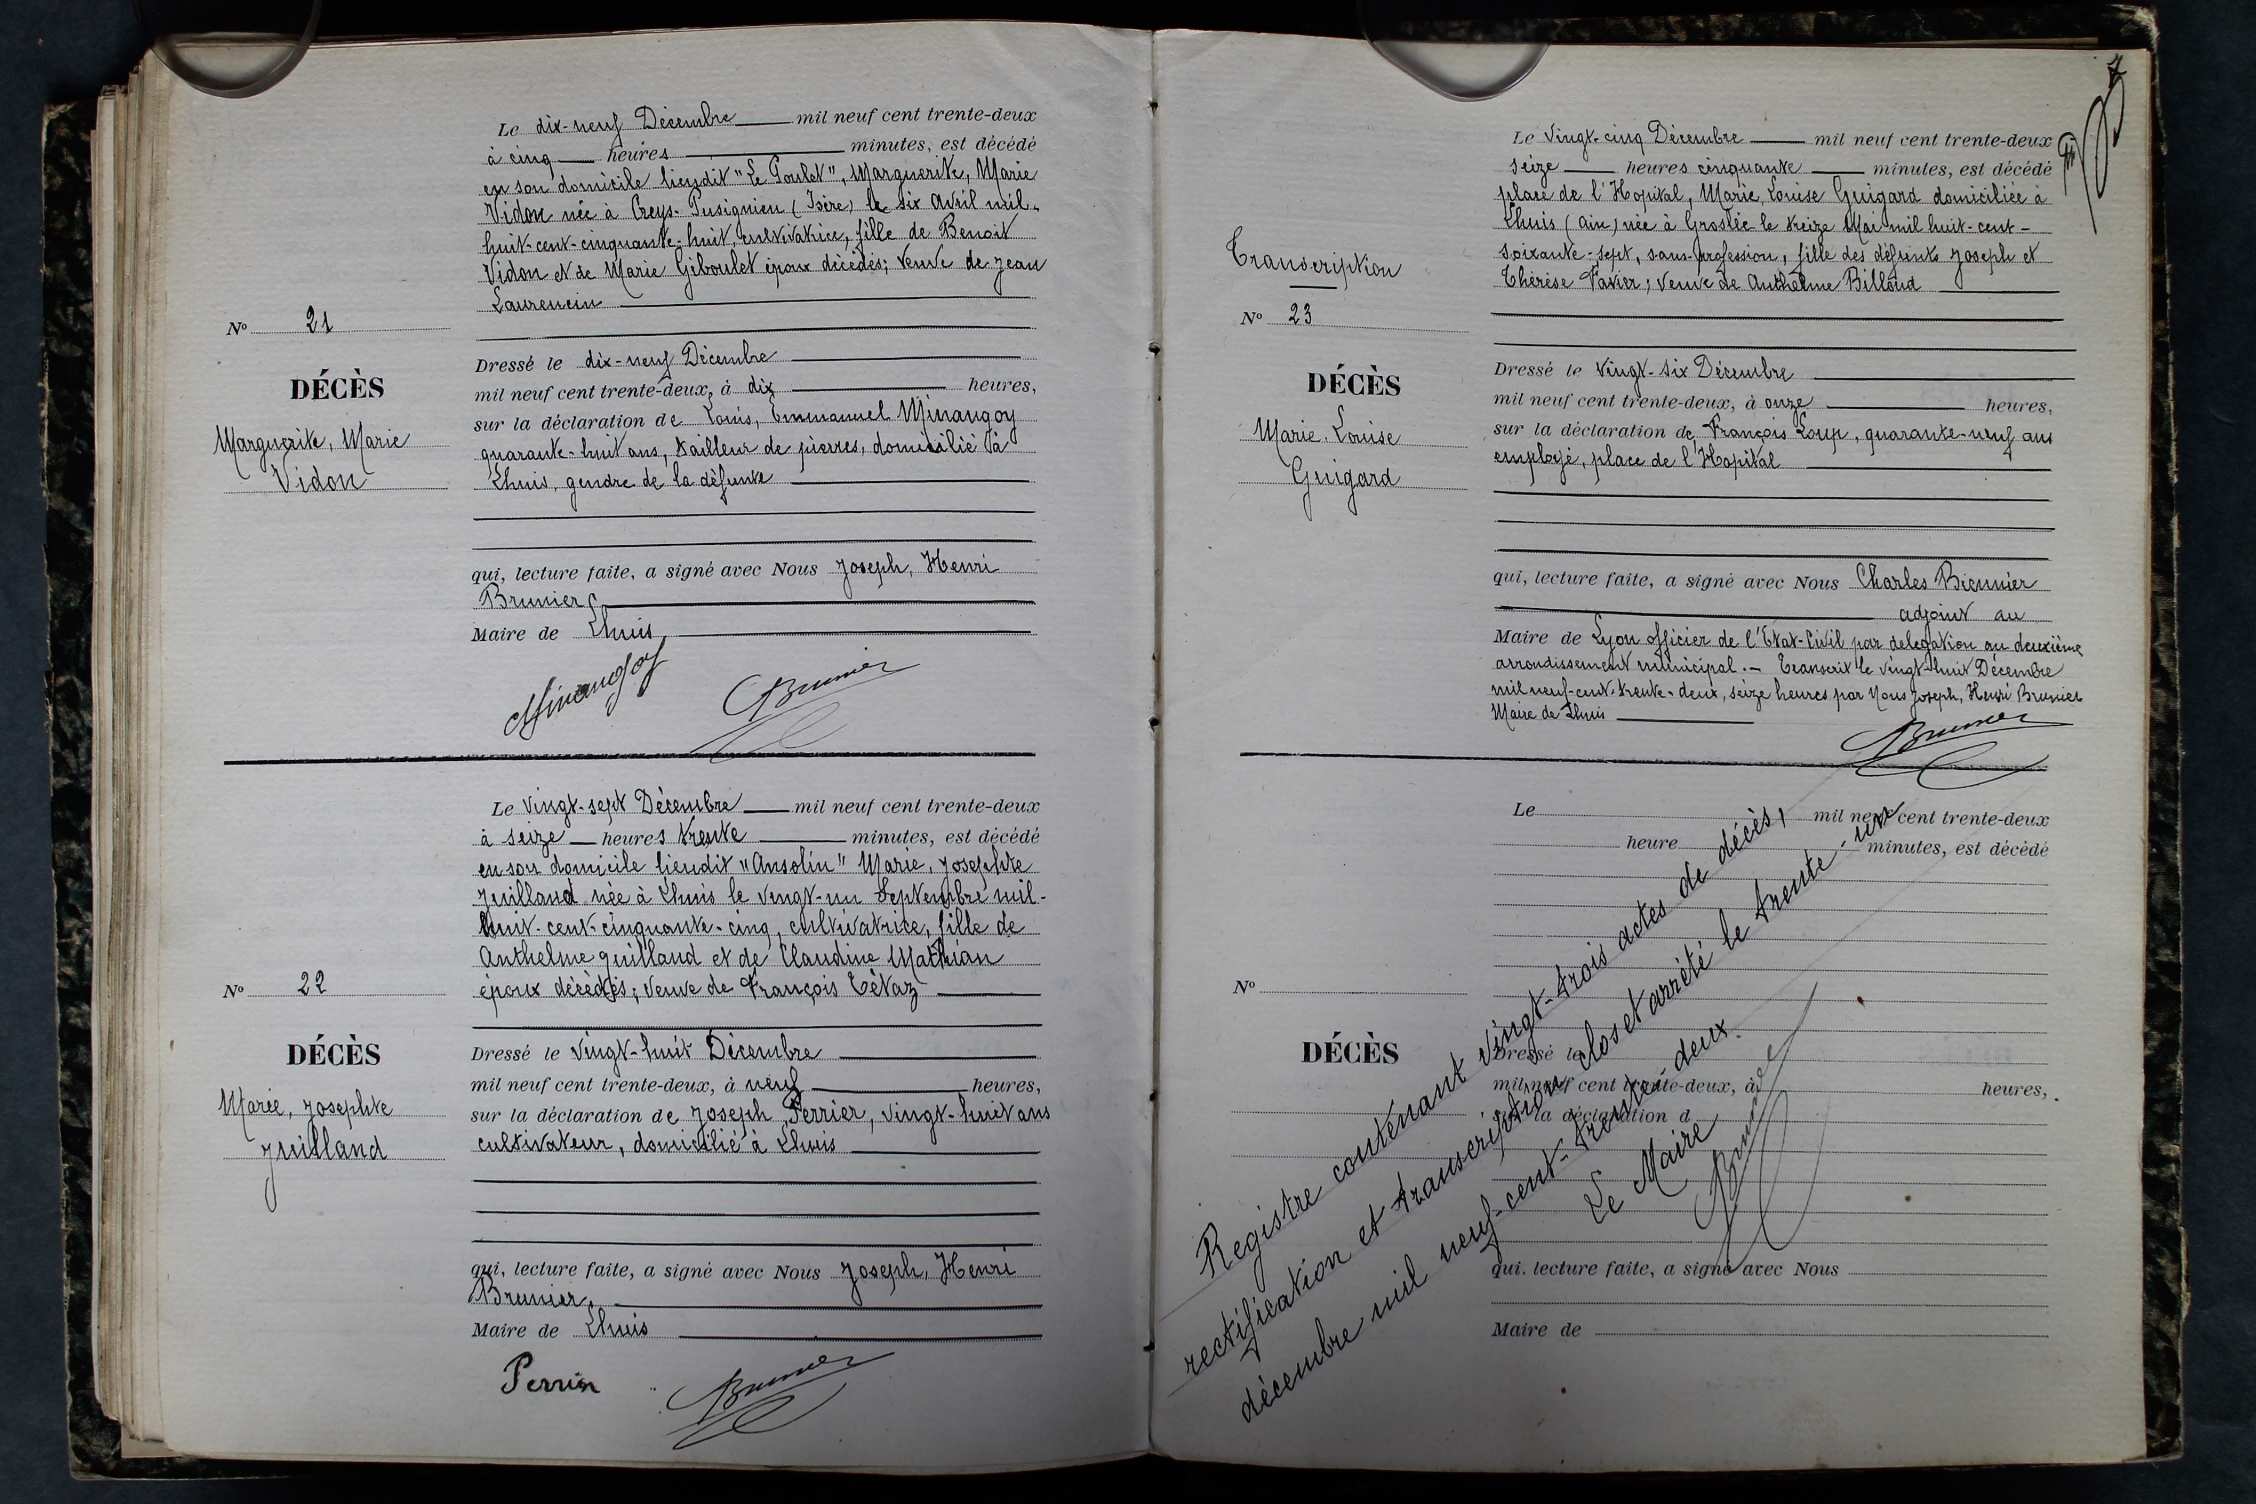 Le dix-neuf Décembre mil neuf cent trente-deux
à cinq heures minutes, est décédé
en son domicile lieudit "Le Poulet", Marguerite, Marie
Vidon née à Creys-Pusignieu (Isère) le six Avril mil-
huit-cent-cinquante-huit, cultivatrice, fille de Benoit
Vidon et de Marie Giboulet époux décédés; veuve de Jean
Laurencin
Nº 21
DÉCÈS
Marguerite, Marie
Vidon
Dressé le dix-neuf Décembre
mil neuf cent trente-deux, à dix heures,
sur la déclaration de Louis, Emmanuel Minangoy
quarante-huit ans, tailleur de pierres, domicilié à
Lhuis, gendre de la défunte
qui, lecture faite, a signé avec Nous Joseph, Henri
Brunier
Maire de Lhuis
Minangoy Brunier
Le vingt-sept Décembre mil neuf cent trente-deux
à seize heures trente minutes, est décédé
en son domicile lieudit "Ansolin" Marie, Josephte
Juilland née à Lhuis le vingt-un Septembre mil-
huit-cent-cinquante-cinq, cultivatrice, fille de
Anthelme Juilland et de Claudine Mathian
époux décédés; veuve de François Tétaz
Nº 22
DÉCÈS
Marie, Josephte
Juilland
Dressé le vingt-huit Décembre
mil neuf cent trente-deux, à neuf heures,
sur la déclaration de Joseph Perrier, vingt-huit ans
cultivateur, domicilié à Lhuis
qui, lecture faite, a signé avec Nous Joseph, Henri
Brunier
Maire de Lhuis
Brunier
Le vingt-cinq Décembre mil neuf cent trente-deux
seize heures cinquante minutes, est décédé
place de l'Hopital, Marie Louise Guigard domiciliée à
Lhuis (Ain) née à Groslée le treize Mai mil huit-cent-
soixante-sept, sans-profession, fille des défunts Joseph et
Thérèse Favier; veuve de Anthelme Billoud
Transcription
Nº 23
DÉCÈS
Marie. Louise
Guigard
Dressé le vingt-six Décembre
mil neuf cent trente-deux, à onze heures,
sur la déclaration de François Loup, quarante-neuf ans
employé, place de l'Hopital
qui, lecture faite, a signé avec Nous Charles Biennier
adjoint au
Maire de Lyon officier de l'Etat-Civil par delegation au deuxième
arrondissement municipal.- Transcrit le vingt-huit Décembre
mil neuf-cent-trente-deux, seize heures par Nous Joseph, Henri Brunier
Maire de Lhuis
Brunier
Le mil neuf cent trente-deux
heure minutes, est décédé
Nº
DÉCÈS
Dressé le
mil neuf cent trente-deux, à heures,
sur la déclaration d
qui, lecture faite, a signé avec Nous
Maire de
Registre contenant vingt-trois actes de décès,
rectification et transcription clos et arrêté le trente-un
décembre mil neuf-cent-trente-deux.
Le Maire
Brunier